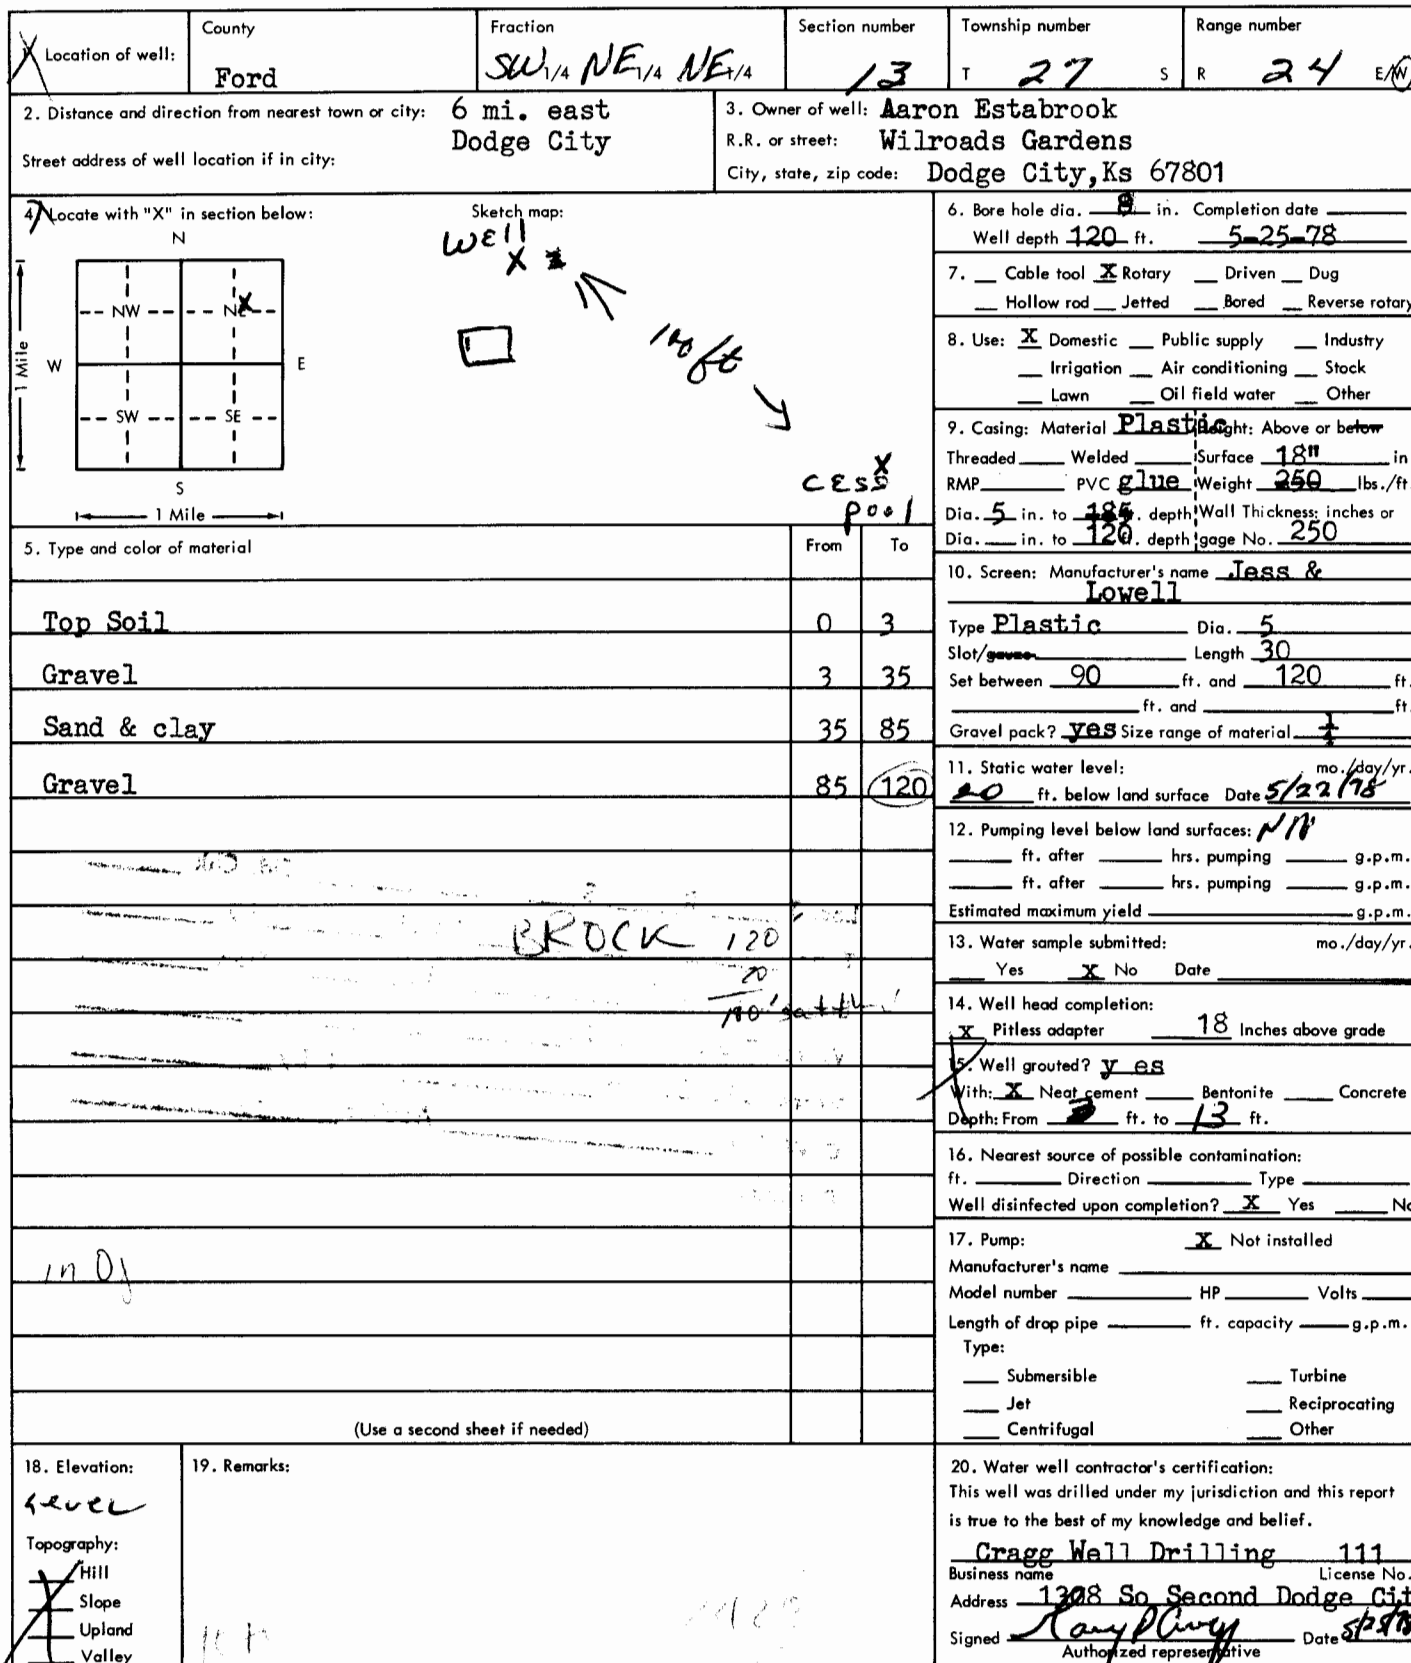 Location of well:
County
Ford
Fraction
SW 1/4 NE 1/4 NE 1/4
Section number
13
Township number
T 27 S
Range number
R 24 E/W
2. Distance and direction from nearest town or city: 6 mi. east
Dodge City
Street address of well location if in city:
3. Owner of well: Aaron Estabrook
R.R. or street: Wilroads Gardens
City, state, zip code: Dodge City,Ks 67801
4. Locate with "X" in section below:
N
NW NE X
W E
SW SE
S
1 Mile
1 Mile
Sketch map:
Well
X
100 ft
X
Cess
pool
5. Type and color of material From To
Top Soil 0 3
Gravel 3 35
Sand & clay 35 85
Gravel 85 120
BROCK 120
20
100'
(Use a second sheet if needed)
6. Bore hole dia. 8 in. Completion date
Well depth 120 ft. 5-25-78
7. Cable tool X Rotary Driven Dug
Hollow rod Jetted Bored Reverse rotary
8. Use: X Domestic Public supply Industry
Irrigation Air conditioning Stock
Lawn Oil field water Other
9. Casing: Material Plastic Height: Above or below
Threaded Welded Surface 18" in
RMP PVC glue Weight 250 lbs./ft.
Dia. 5 in. to depth Wall Thickness: inches or
Dia. in. to 120 depth gage No. 250
10. Screen: Manufacturer's name Jess &
Lowell
Type Plastic Dia. 5
Slot/gauze Length 30
Set between 90 ft. and 120 ft.
ft. and ft.
Gravel pack? yes Size range of material
11. Static water level: mo./day/yr.
20 ft. below land surface Date 5/22/78
12. Pumping level below land surfaces:
ft. after hrs. pumping g.p.m.
ft. after hrs. pumping g.p.m.
Estimated maximum yield g.p.m.
13. Water sample submitted: mo./day/yr.
Yes X No Date
14. Well head completion:
X Pitless adapter 18 Inches above grade
15. Well grouted? y es
With: X Neat cement Bentonite Concrete
Depth: From ft. to 13 ft.
16. Nearest source of possible contamination:
ft. Direction Type
Well disinfected upon completion? X Yes No
17. Pump: X Not installed
Manufacturer's name
Model number HP Volts
Length of drop pipe ft. capacity g.p.m.
Type:
Submersible Turbine
Jet Reciprocating
Centrifugal Other
18. Elevation:
Level
Topography:
Hill
Slope
Upland
Valley
19. Remarks:
20. Water well contractor's certification:
This well was drilled under my jurisdiction and this report
is true to the best of my knowledge and belief.
Cragg Well Drilling 111
Business name License No.
Address 1308 So Second Dodge Cit
Signed Date 5/25/78
Authorized representative